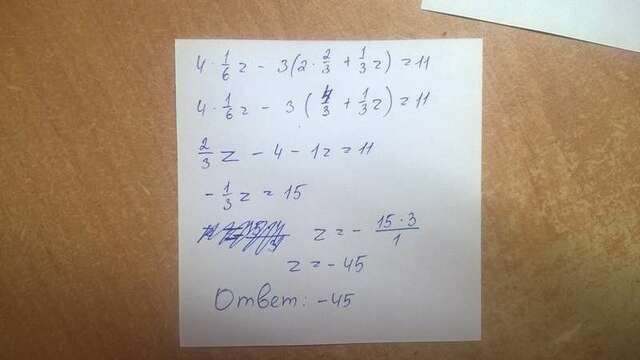 4 · 1/6 z - 3(2 · 2/3 + 1/3 z) = 11
4 · 1/6 z - 3(4/3 + 1/3 z) = 11
2/3 z - 4 - 1z = 11
- 1/3 z = 15
z = - 15·3/1
z = -45
Ответ: -45